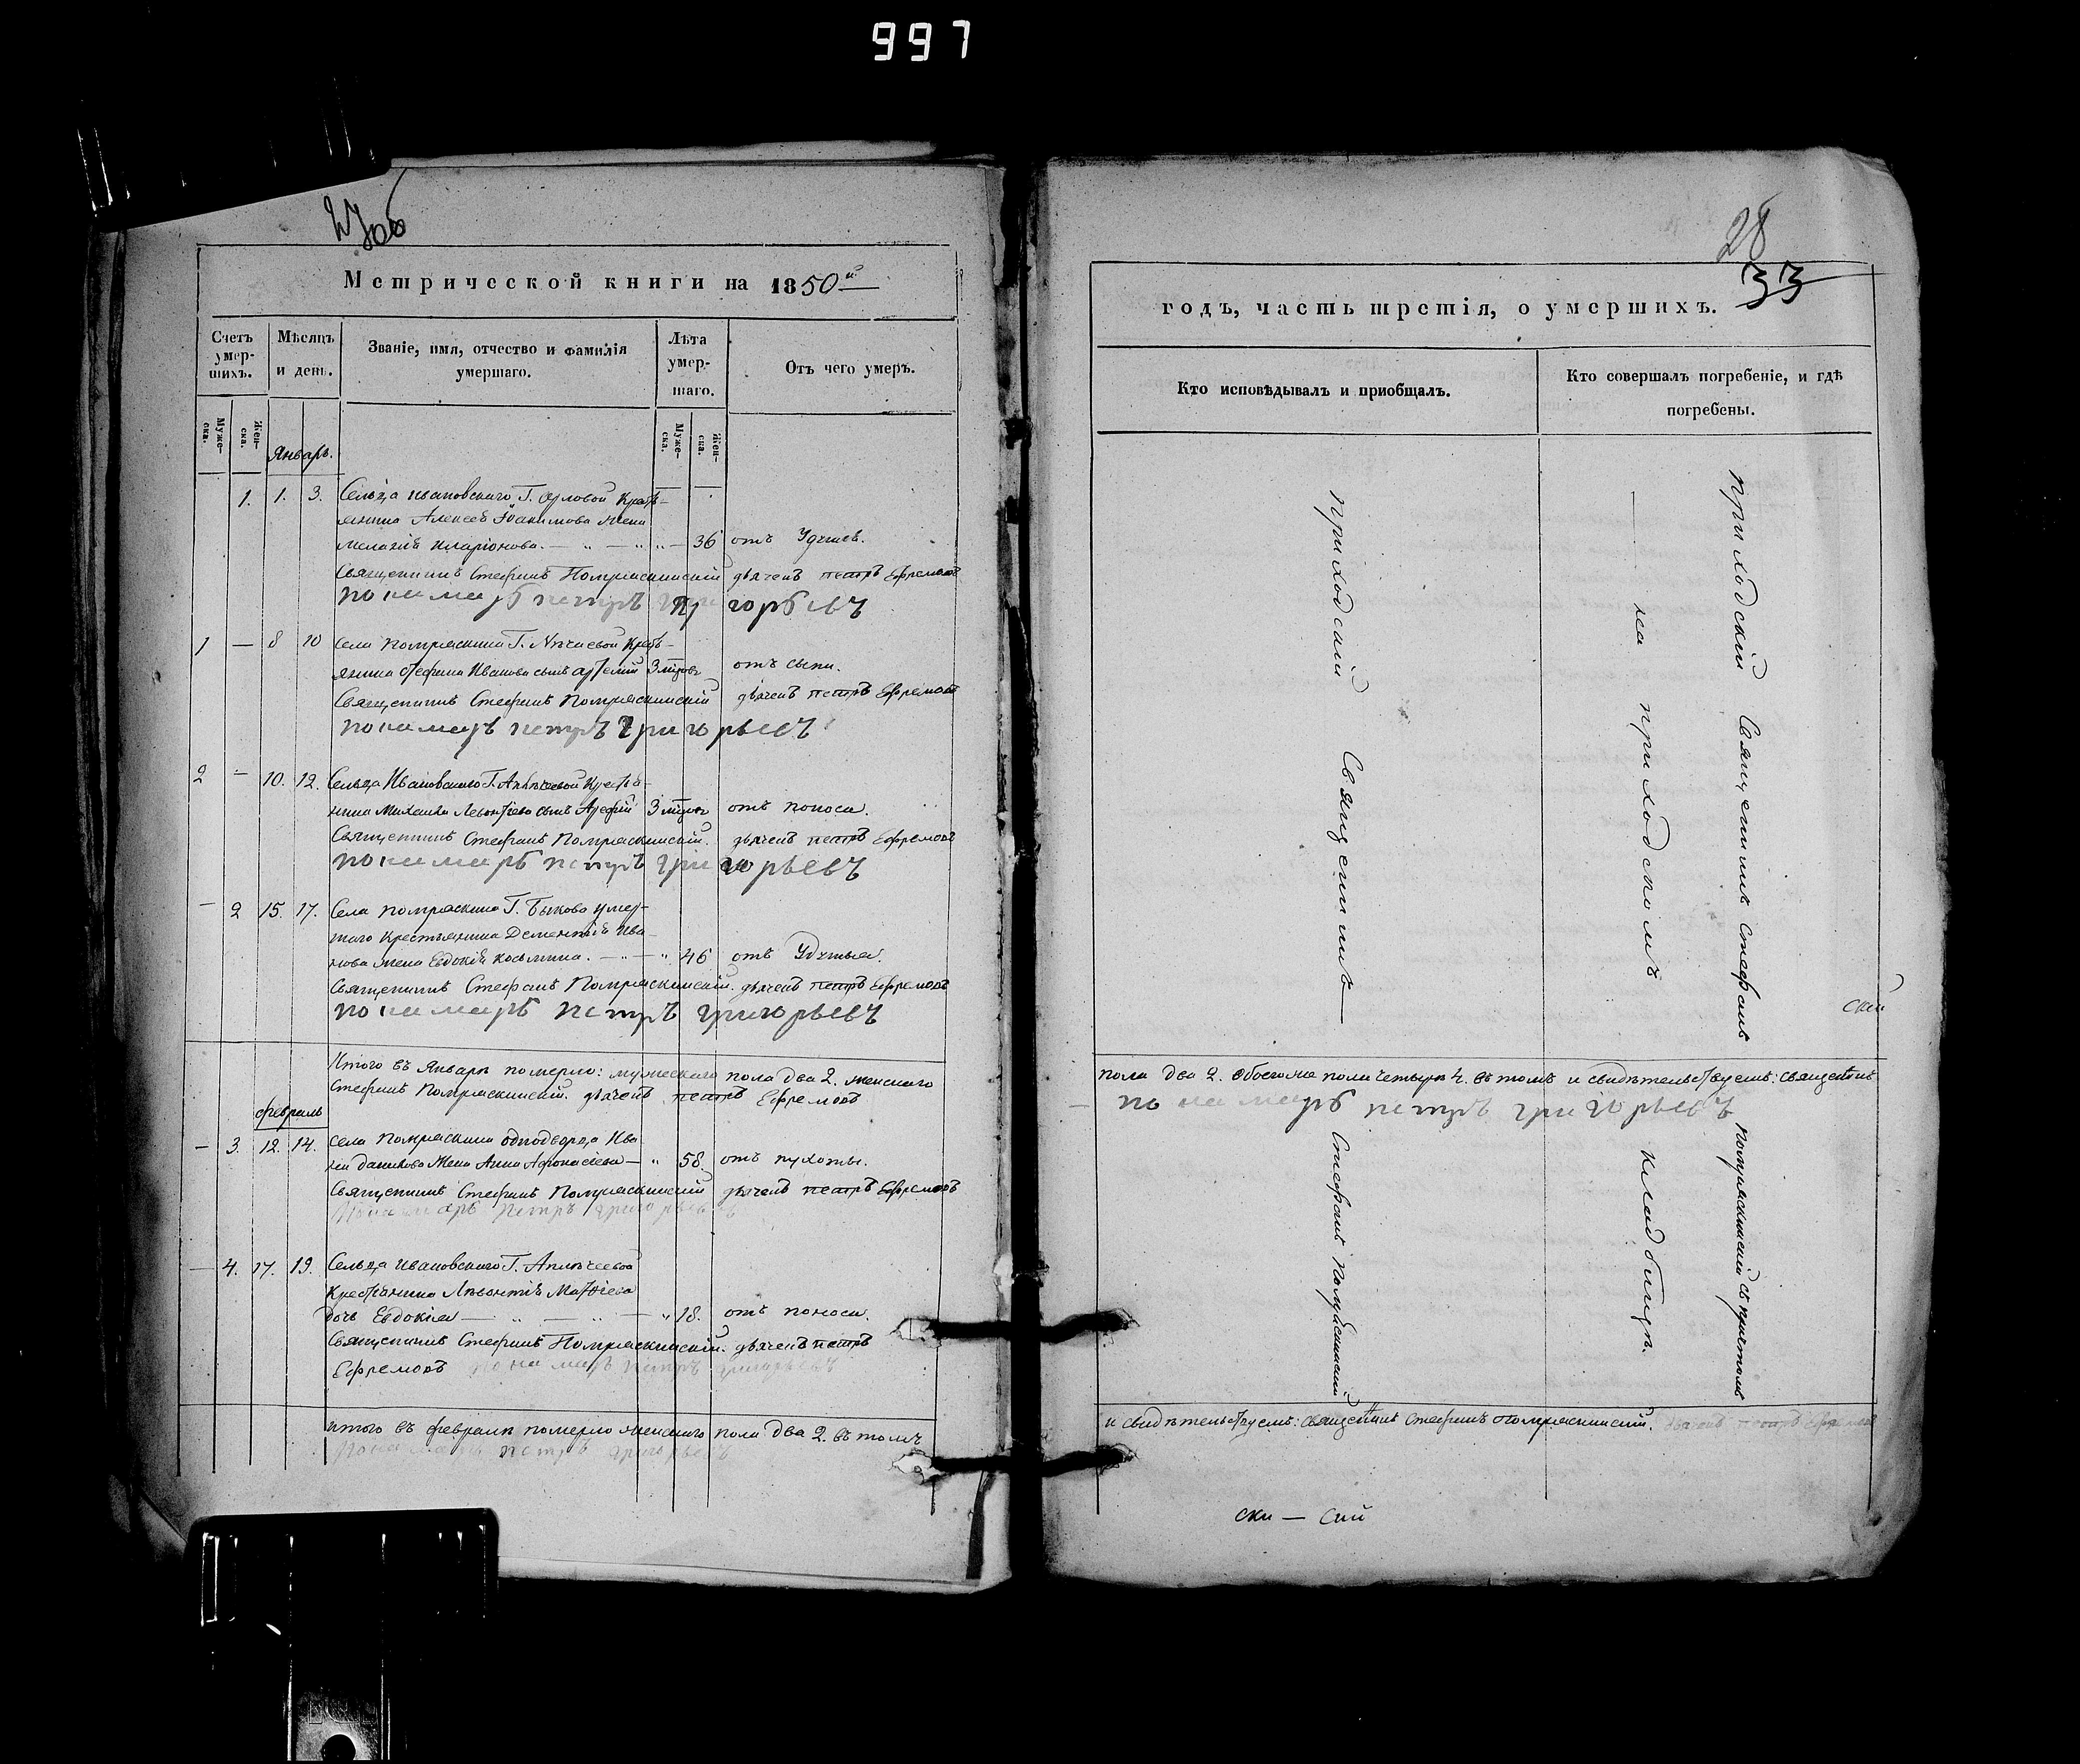 997
27об
Метрической книги на 1850й
Счетъ умер-шихъ.
Мѣсяцъ и день.
Званіе, имя, отчество и фамилія умершаго.
Лѣта умер-шаго.
Отъ чего умеръ.
Муже-ска.
Жен-ска.
Муже-ска.
Жен-ска.
Январь.
1. 1. 3. Сельца Ивановскаго Г. Орловой Крест-
янина Алексея Іоакимова жена
Меланія Иларіонова. — „ — „ „ — 36 отъ Удушья.
Священникъ Стефанъ Потряскинскій дьячекъ петръ Ефремовъ
пономарь петръ григорьевъ
1 — 8 10 Села Потряскина Г. Крест-
янина Стефана Иванова сынъ Артемій 3 отъ сыпи.
Священникъ Стефанъ Потряскинскій дьячекъ петръ Ефремовъ
пономарь петръ григорьевъ
2 — 10. 12. Сельца Ивановскаго Г. Аплечеевой Крестья-
нина Михаила Леонтіева сынъ 3 отъ поноса.
Священникъ Стефанъ Потряскинскій. дьячекъ петръ Ефремовъ
пономарь петръ григорьевъ
— 2 15. 17. Села Потряскина Г. Быкова умер-
шаго Крестьянина Дементія Ива-
нова жена Евдокія Косьмина. — „ — „ 46 отъ Удушья.
Священникъ Стефанъ Потряскинскій. дьячекъ петръ Ефремовъ
пономарь петръ григорьевъ
Итого въ Январѣ померло: мужескаго пола два 2. женскаго
Стефанъ Потряскинскій. дьячекъ петръ Ефремовъ
февраль
— 3. 12. 14. Села Потряскина однодворца Ива-
на Данилова жена Анна Афонасіева — „ 58. отъ сухоты.
Священникъ Стефанъ Потряскинскій дьячекъ петръ Ефремовъ
Пономарь петръ григорьевъ
— 4. 17. 19. Сельца Ивановскаго Г. Аплечеевой
Крестьянина Леонтія Матфіева
дочь Евдокія — „ — „ — „ 18. отъ поноса.
Священникъ Стефанъ Потряскинскій. дьячекъ петръ
Ефремовъ пономарь петръ григорьевъ
итого въ февралѣ померло женскаго пола два 2. въ томъ
Пономарь петръ григорьевъ
28
33
годъ, часть третія, о умершихъ.
Кто исповѣдывалъ и пріобщалъ.
Кто совершалъ погребеніе, и гдѣ погребены.
приходскій Священникъ —
на приходскомъ
приходскій Священникъ Стефанъ
скій
пола два 2. обоегоже пола четыре 4. въ томъ и свидѣтельствуемъ: Священникъ
пономарь петръ григорьевъ
Стефанъ Потряскинскій
кладбищѣ.
Потряскинскій съ причтомъ
и свидѣтельствуемъ: Священникъ Стефанъ Потряскинскій. дьячекъ петръ Ефремовъ
ски — скій